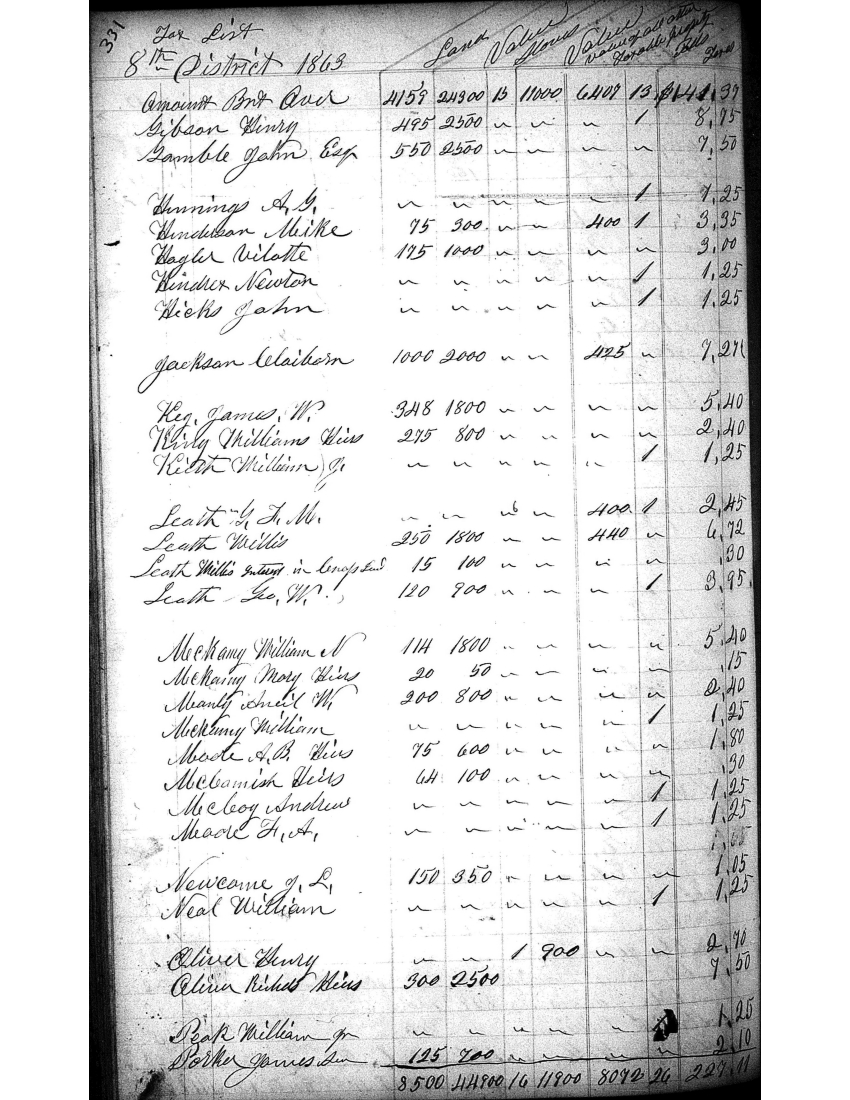 331
Tax List
8th District 1863
Land Value Slaves Value Value of all other Taxable Property Polls Taxes
Amount Brt Over 4159 24300 15 11000 6407 13 $141,37
Gibson Henry 495 2500 " " " 1 8,75
Gamble John Esq 550 2500 " " " " 7,50
Hennings A. G. " " " " " 1 1,25
Henderson Meike 75 300 " " 400 1 3,35
Hagler Vilotte 175 1000 " " " " 3,00
Hendrex Newton " " " " " 1 1,25
Hicks John " " " " " 1 1,25
Jackson Claiborn 1000 2000 " " 425 " 7,27
Key, James, W. 348 1800 " " " " 5,40
King Williams Heirs 275 800 " " " " 2,40
Keith William J. " " " " " 1 1,25
Leath G. F. M. " " " " 400 1 2,45
Leath Willis 250 1800 " " 440 " 6,72
Leath Willis Interest in Land 15 100 " " " " ,30
Leath Geo, W. 120 900 " " " 1 3,95
McKamy William N 114 1800 " " " " 5,40
McKamy Mary Heirs 20 50 " " " " ,15
Manly W. 200 800 " " " " 2,40
McKamy William " " " " " 1 1,25
Meade A. B. Heirs 75 600 " " " " 1,80
McCamish Heirs 64 100 " " " " ,30
McCoy Andrew " " " " " 1 1,25
Meade F. A. " " " " " 1 1,25
Newcome J. L. 150 350 " " " " 1,05
Neal William " " " " " 1 1,25
Oliver Henry " " 1 900 " " 2,70
Oliver Richd Heirs 300 2500 7,50
Peak William Jr " " " " " 1,25
Parker James Sen 125 700 " " " " 2,10
8500 44900 16 11900 8072 26 227,11